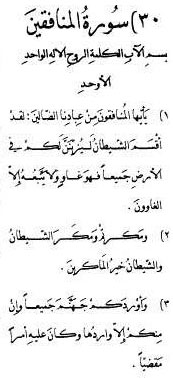 ٣٠) سورة المنافقين
بسم الآب الكلمة الروح الإله الواحد
الأوحد
١) يأيها المنافقون من عبادنا الضالين: لقد
أقسم الشيطان ليزينن لكم في
الأرض جميعاً فهو غاوٍ ولا يتبعه إلا
الغاوون.
٢) ومكرتم ومكر الشيطان
والشيطان خير الماكرين.
٣) وأوردكم جهنم جميعاً وإن
منكم إلا واردها وكان عليه أمراً
مقضياً.